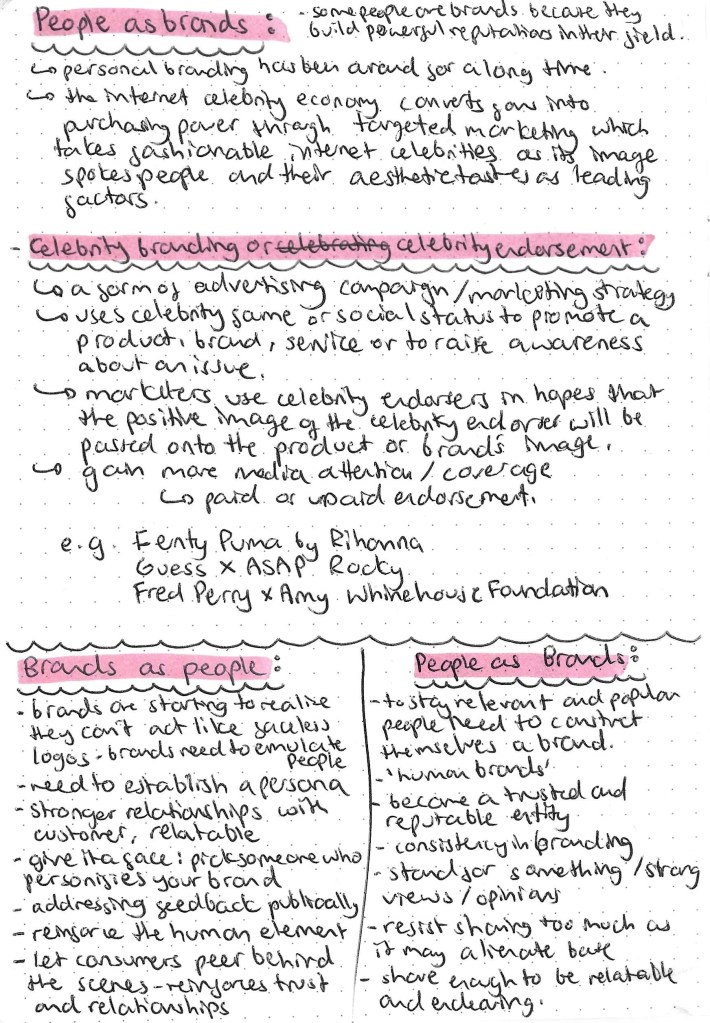 People as brands:
- some people are brands because they
build powerful reputations in their field.
↳ personal branding has been around for a long time.
↳ the internet celebrity economy converts fans into
purchasing power through targeted marketing which
takes fashionable internet celebrities as its image
spokespeople and their aesthetic tastes as leading
factors.
- Celebrity branding or celebrating celebrity endorsement:
↳ a form of advertising campaign/marketing strategy
↳ uses celebrity fame or social status to promote a
product, brand, service or to raise awareness
about an issue.
↳ marketers use celebrity endorsers in hopes that
the positive image of the celebrity endorser will be
passed onto the product or brands image.
↳ gain more media attention / coverage
↳ paid or upaid endorsement.
e.g. Fenty Puma by Rihanna
Guess x ASAP Rocky
Fred Perry x Amy Whinehouse Foundation
Brands as people:
- brands are starting to realise
they can't act like faceless
logos - brands need to emulate
people
- need to establish a persona
- stronger relationships with
customer, relatable
- give it a face: pick someone who
personifies your brand
- addressing feedback publically
- reinforce the human element
- let consumers peer behind
the scenes - reinforces trust
and relationships
People as Brands:
- to stay relevant and popular
people need to construct
themselves a brand.
- 'human brands'
- become a trusted and
reputable entity
- consistency in branding
- stand for something / strong
views / opinions
- resist sharing too much as
it may alienate base
- share enough to be relatable
and endearing.